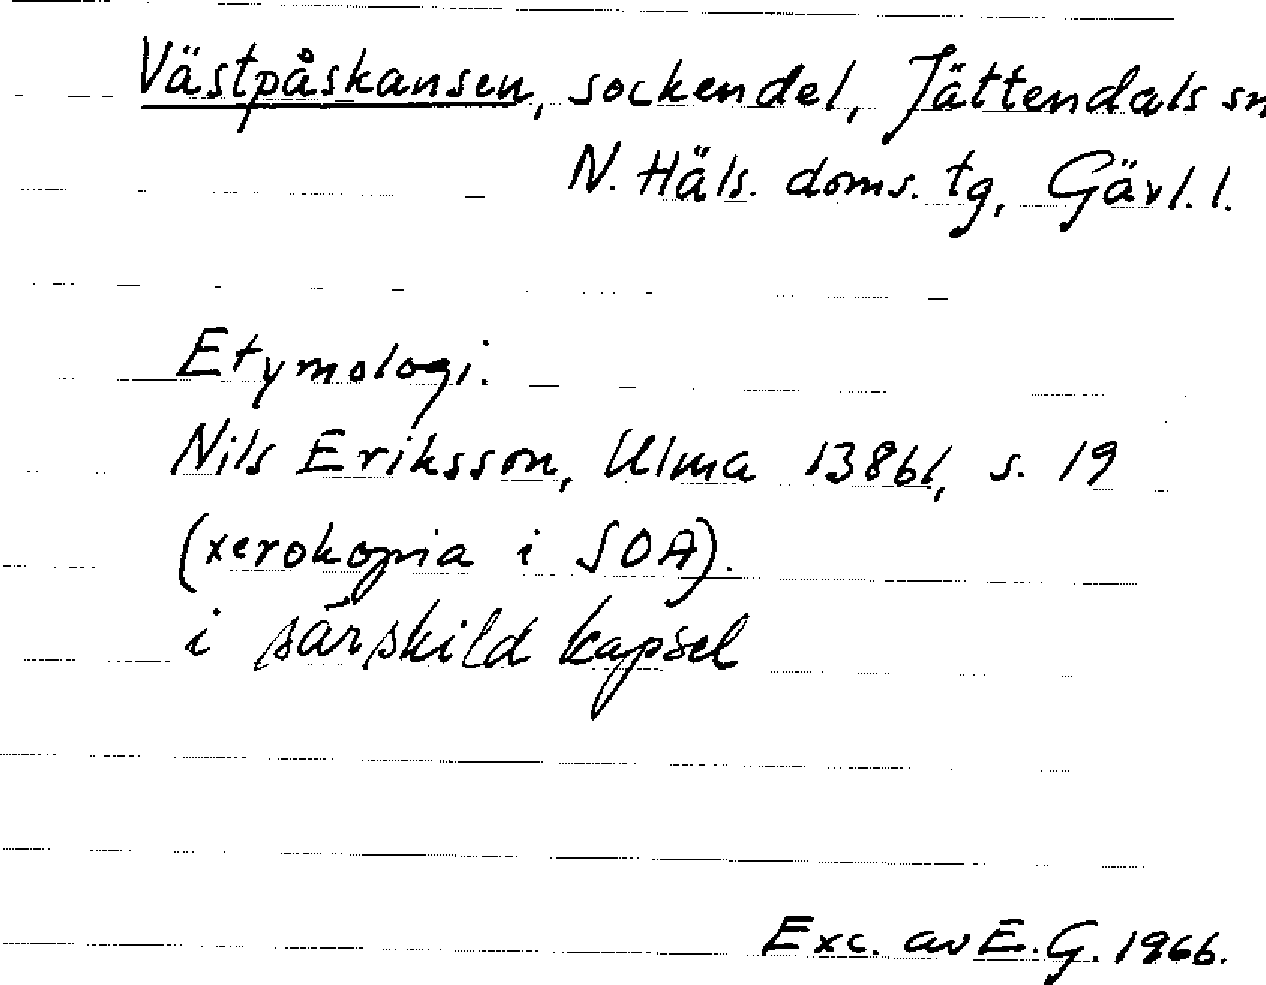 Västpåskansen, sockendel, Jättendals sn
N. Häls. doms. tg, Gävl. l.
Etymologi.
Nils Eriksson, Ulma 13861, s. 19
(xerokopia i SOA).
i särskild kapsel
Exc. av E. G. 1966.